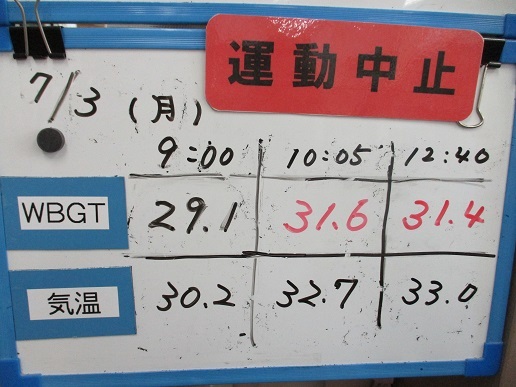 運動中止
7/3 (月)
9:00 10:05 12:40
WBGT 29.1 31.6 31.4
気温 30.2 32.7 33.0